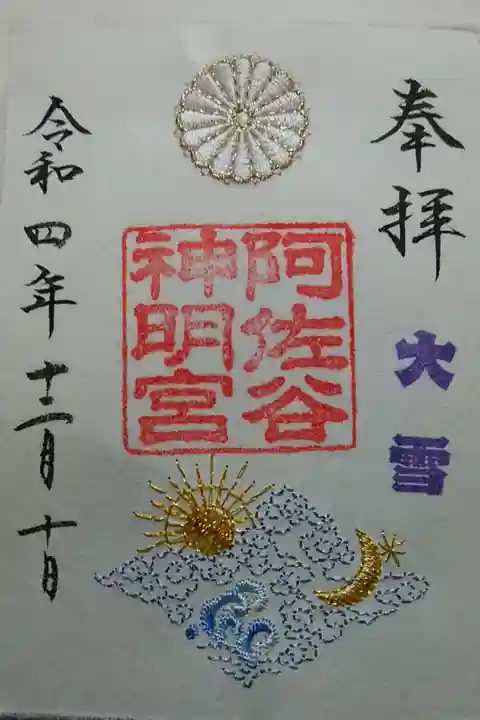 奉拝
大雪
阿佐谷
神明宮
令和四年十二月十日